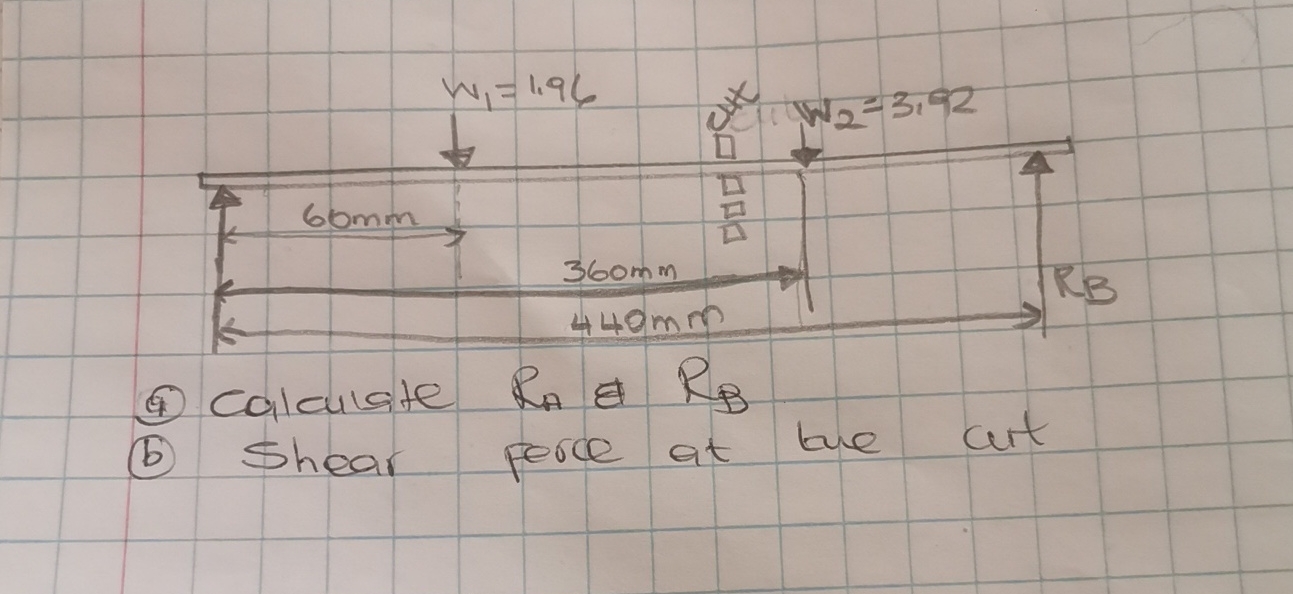 W1=1.96
cut
W2=3.92
60mm
360mm
RB
440mm
a Calculate RA & RB
b Shear force at the cut